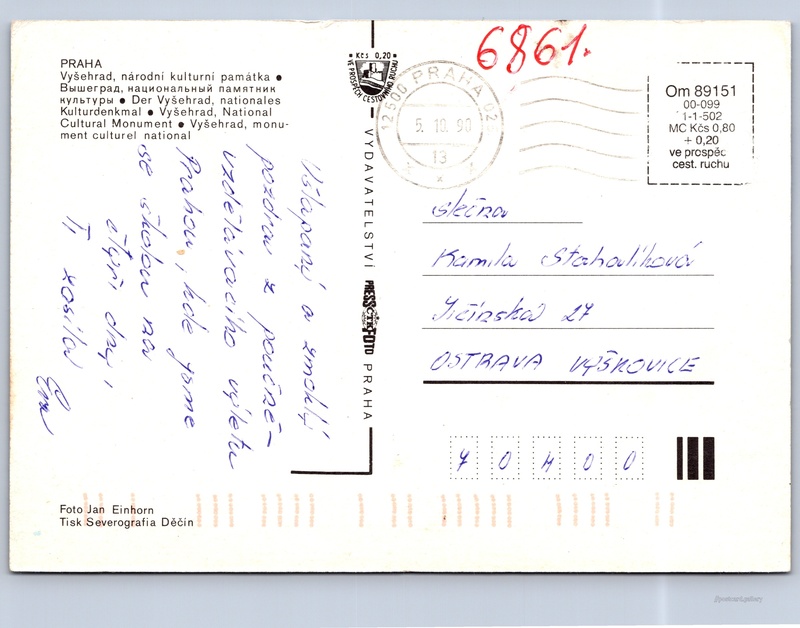 PRAHA
Vyšehrad, národní kulturní památka ●
Вышеград, национальный памятник
культуры ● Der Vyšehrad, nationales
Kulturdenkmal ● Vyšehrad, National
Cultural Monument ● Vyšehrad, monu-
ment culturel national
Ušlapaný a zmoklý
pozdrav z poučně-
vzdělávacího výletu
Prahou, kde jsme
se školou na
čtyři dny,
Ti zasílá
Eva
Foto Jan Einhorn
Tisk Severografia Děčín
Kčs 0,20
VE PROSPĚCH CESTOVNÍHO RUCHU
VYDAVATELSTVÍ PRESSFOTO PRAHA
ČTK
6861.
12500 PRAHA 02
5.10.90
13
Om 89151
00-099
1-1-502
MC Kčs 0,80
+ 0,20
ve prospěc
cest. ruchu
slečna
Kamila Stahalíková
Jičínská 27
OSTRAVA VÝŠKOVICE
70400
@postcard.gallery